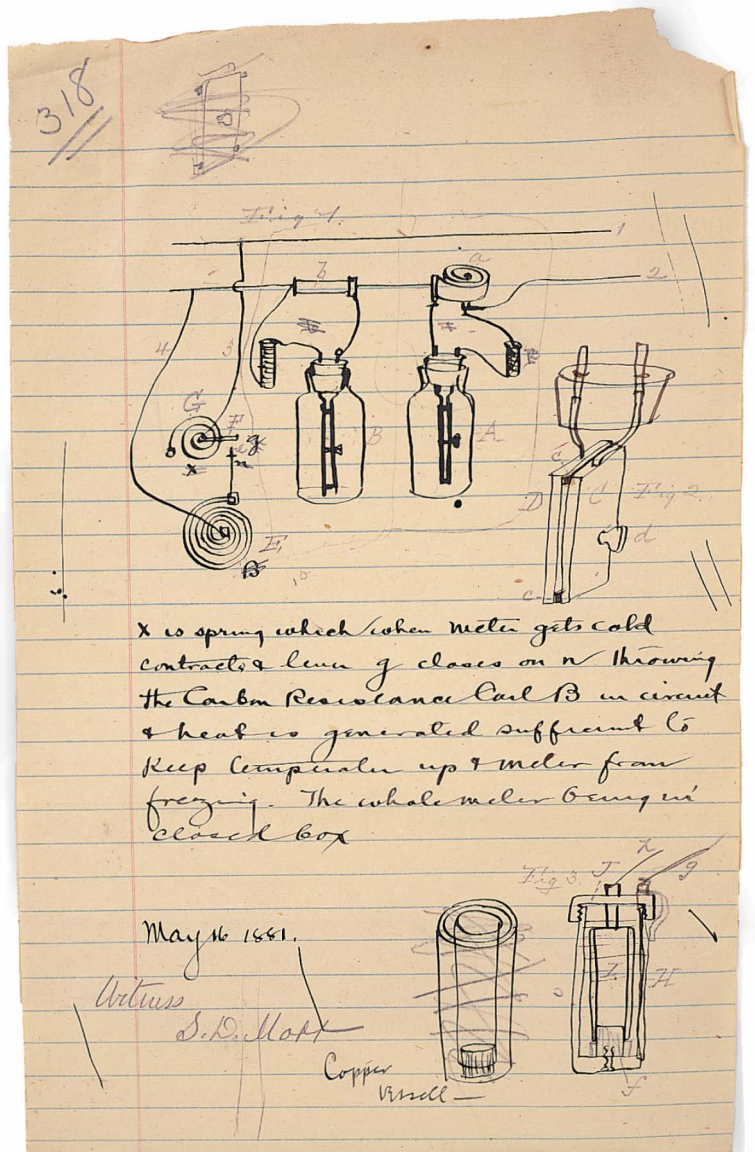 318
Fig 1.
1
b
a
2
4
3
G
F
g
x
n
B
A
E
B
D
C
Fig 2.
c
d
c
X is spring which when meter gets cold
contracts & lever g closes on n throwing
the Carbon Resistance Coil B in circuit
& heat is generated sufficient to
Keep temperature up & meter from
freezing. The whole meter being in
closed box
Fig 3
J
h
g
I
H
f
May 16 1881.
Witness
S. D. Mott
Copper
Vessell —